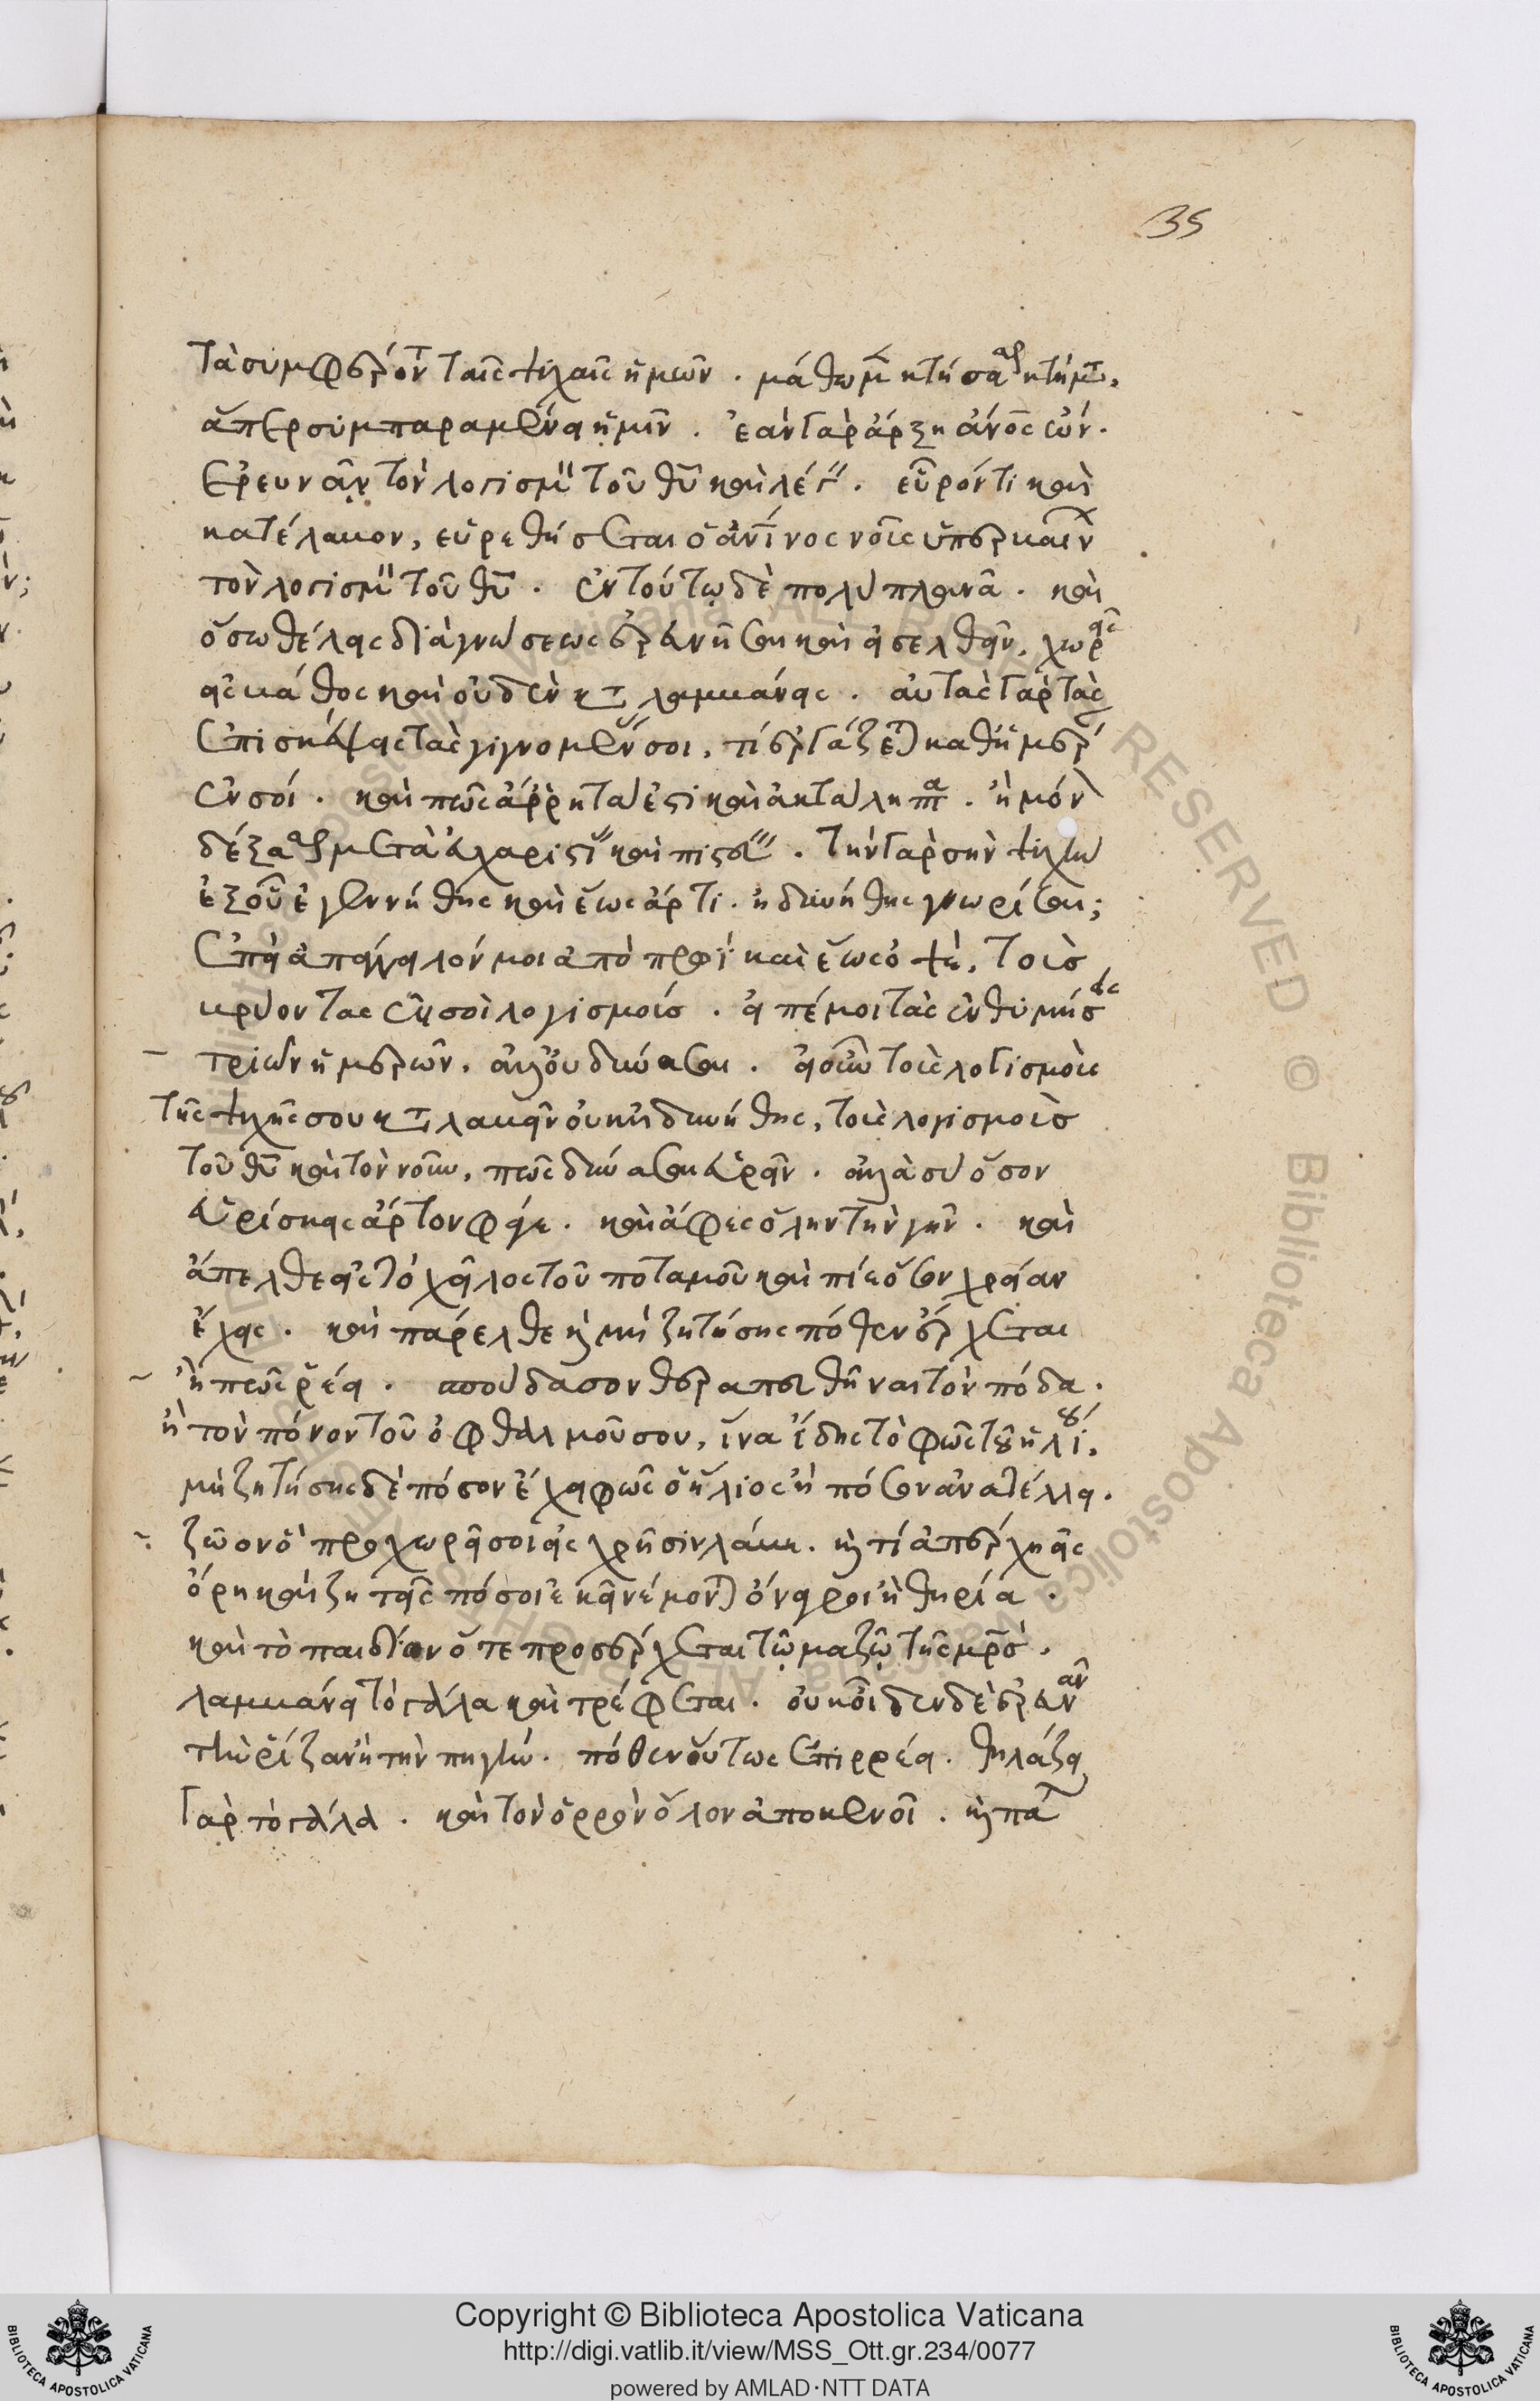 35
τὰ συμφέροντ ταῖς ψυχαῖς ἡμῶν . μάθωμ κτήσασθ κτήμτ,
ἅπερ συμπαραμένει ἡμῖν . ἐὰν γὰρ ἄρξη ἄνος ὢν .
ἐρευνᾶν τὸν λογισμ τοῦ θυ καὶ λέγ . εὗρόν τι καὶ
κατέλαβον, εὑρεθήσεται ὁ ἄνινος νοῦς ὑπερβαίν
τὸν λογισμ τοῦ θυ . ἐν τούτω δὲ πολὺ πλανᾶ . καὶ
ὅσω θέλεις διὰ γνώσεως ἐρευνῆσαι καὶ εἰσελθεῖν, χωρεῖς
εἰς βάθος καὶ οὐδὲν κτ λαμβάνεις . αὐτὰς γὰρ τὰς
ἐπισκέψεις τὰς γιγνομέν σοι, τί ἐργάζεται καθ ἡμέρ
ἐν σοί . καὶ πῶς ἄρρητά ἐστι καὶ ἀκτάληπτα . ἢ μόν
δέξασθ μετὰ εὐχαριστ καὶ πιστ . τὴν γὰρ σὴν ψυχὴν
ἐξ οὗ ἐγεννήθης καὶ ἕως ἄρτι . ἠδυνήθης γνωρίσαι;
ἐπεὶ ἀπάγγειλόν μοι ἀπὸ πρωῒ καὶ ἕως ὀψὲ, τοὺσ
βρύοντας ἐν σοὶ λογισμούσ . εἰπέ μοι τὰς ἐνθυμήσεις
τριῶν ἡμερῶν . ἀλλ οὐ δύνασαι . εἰ οὖν τοὺς λογισμοὺς
τῆς ψυχῆς σου κτ λαβεῖν οὐκ ἠδυνήθης, τοὺς λογισμοὺσ
τοῦ θυ καὶ τὸν νοῦν, πῶς δύνασαι εὑρεῖν . ἀλλὰ σὺ ὅσον
εὑρίσκεις ἄρτον φάγε . καὶ ἄφες ὅλην τὴν γῆν . καὶ
ἄπελθε εἰς τὸ χεῖλος τοῦ ποταμοῦ καὶ πίε ὅσον χρείαν
ἔχεις . καὶ πάρελθε κ μὴ ζητήσης πόθεν ἔρχεται
ἢ πῶς ῥέει . σπούδασον θεραπευθῆναι τὸν πόδα .
ἢ τὸν πόνον τοῦ ὀφθαλμοῦ σου, ἵνα ἴδης τὸ φῶς τοῦ ἡλίου .
μὴ ζητήσης δὲ πόσον ἔχει φῶς ὁ ἥλιος ἢ πόσον ἀνατέλλει .
ζῶον ὃ προχωρεῖ σοι εἰς χρῆσιν λάβε . κ τί ἀπέρχη εἰς
ὄρη καὶ ζητεῖς πόσοι ἐκεῖ νέμονται ὄναγροι ἢ θηρία .
καὶ τὸ παιδίον ὅτε προσέρχεται τῶ μαζῶ τῆς μρσ .
λαμβάνει τὸ γάλα καὶ τρέφεται . οὐκ οἶδεν δὲ ἐρευνᾶν
τὴν ῥίζαν ἢ τὴν πηγὴν . πόθεν οὕτως ἐπιρρέει . θηλάζει
γὰρ τὸ γάλα . καὶ τὸν ὀρρὸν ὅλον ἀποκενοῖ . κ πα